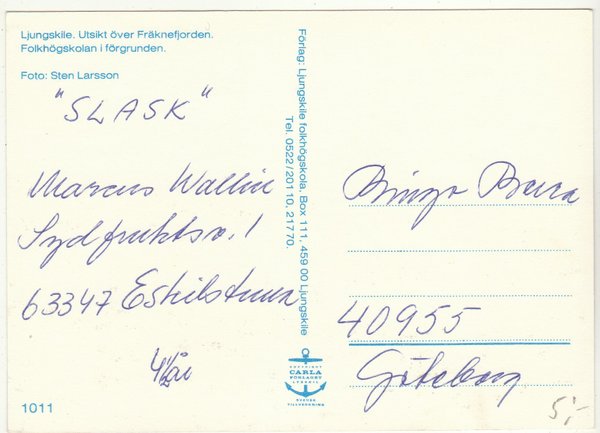 Ljungskile. Utsikt över Fräknefjorden.
Folkhögskolan i förgrunden.
Foto: Sten Larsson
"SLASK"
Marcus Wallin
Sydfruktsv. 1
63347 Eskilstuna
4 1/2 år
1011
Förlag: Ljungskile folkhögskola, Box 111, 459 00 Ljungskile
Tel. 0522/20110, 21770.
COPYRIGHT
CARLA
FÖRLAGET
LYSEKIL
SVENSK
TILLVERKNING
Bingo Bara
40955
Göteborg
5:-